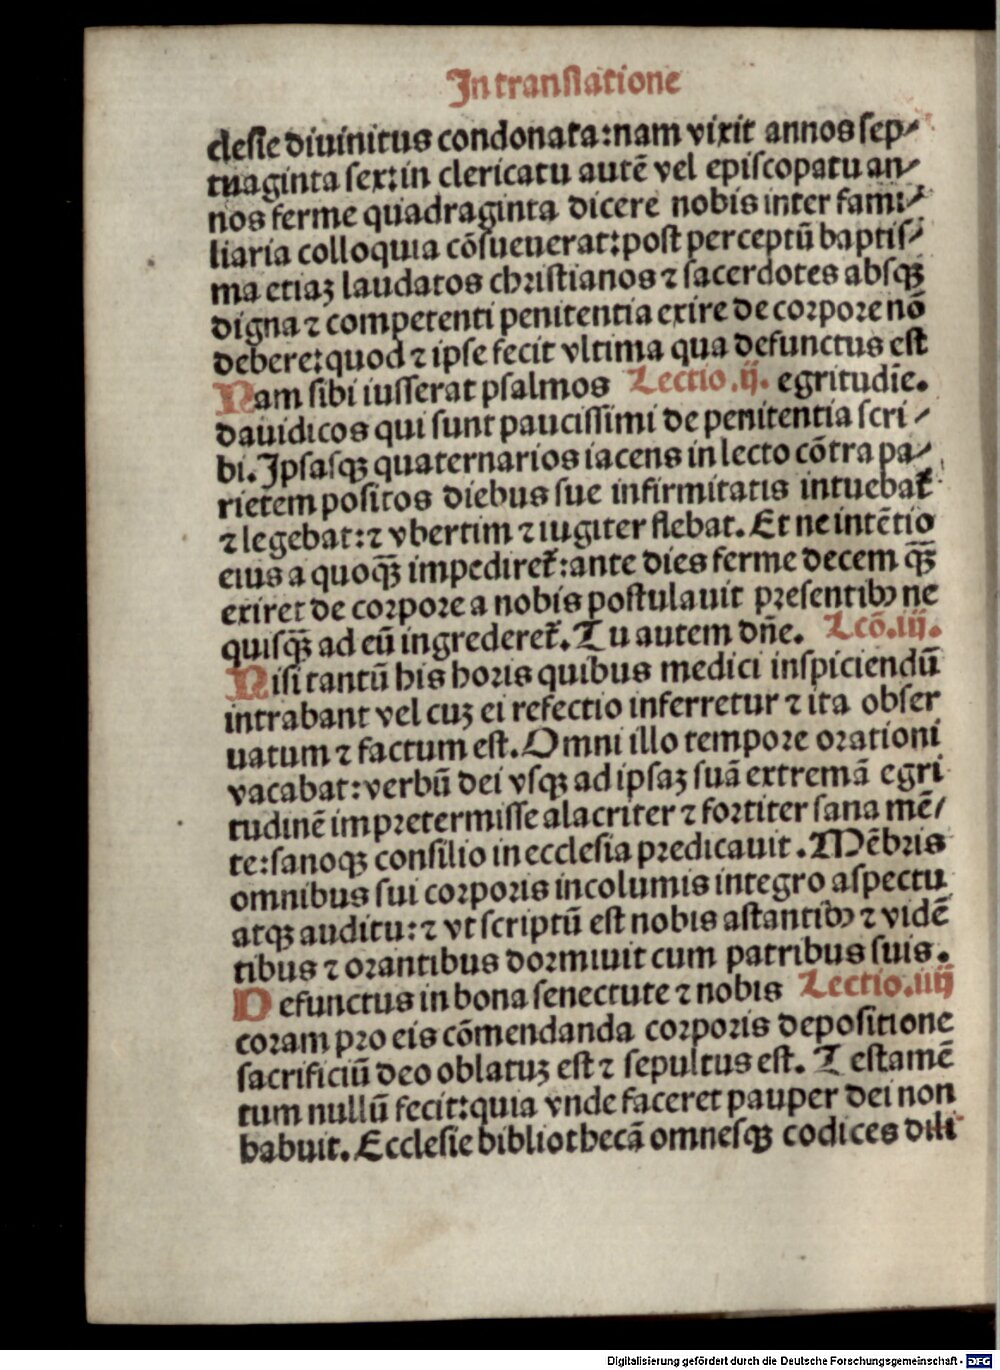 In translatione
clesie diuinitus condonata:nam vixit annos sep⸗
tuaginta sex:in clericatu autē vel episcopatu an⸗
nos ferme quadraginta dicere nobis inter fami⸗
liaria colloquia cōsueuerat:post perceptū baptis⸗
ma etiaꝫ laudatos christianos ⁊ sacerdotes absqꝫ
digna ⁊ competenti penitentia exire de corpore nō
debere:quod ⁊ ipse fecit vltima qua defunctus est
Nam sibi iusserat psalmos Lectio .ij. egritudīe.
dauidicos qui sunt paucissimi de penitentia scri⸗
bi. Ipsasqꝫ quaternarios iacens in lecto cōtra pa⸗
rietem positos diebus sue infirmitatis intuebat̄
⁊ legebat:⁊ vbertim ⁊ iugiter flebat. Et ne intētio
eius a quoqꝫ̄ impediret̄:ante dies ferme decem qꝫ̄
exiret de corpore a nobis postulauit presentibꝰ ne
quisqꝫ̄ ad eū ingrederet̄. Tu autem dn̄e. Lcō.iij.
Nisi tantū his horis quibus medici inspiciendū
intrabant vel cuꝫ ei refectio inferretur ⁊ ita obser
uatum ⁊ factum est. Omni illo tempore orationi
vacabat:verbū dei vsqꝫ ad ipsaꝫ suā extremā egri
tudinē impretermisse alacriter ⁊ fortiter sana mē/
te:sanoqꝫ consilio in ecclesia predicauit. Mēbris
omnibus sui corporis incolumis integro aspectu
atqꝫ auditu:⁊ vt scriptū est nobis astantibꝰ ⁊ vidē
tibus ⁊ orantibus dormiuit cum patribus suis.
Defunctus in bona senectute ⁊ nobis Lectio.iiij
coram pro eis cōmendanda corporis depositione
sacrificiū deo oblatuꝫ est ⁊ sepultus est. Testamē
tum nullū fecit:quia vnde faceret pauper dei non
habuit. Ecclesie bibliothecā omnesqꝫ codices dili
Digitalisierung gefördert durch die Deutsche Forschungsgemeinschaft - DFG